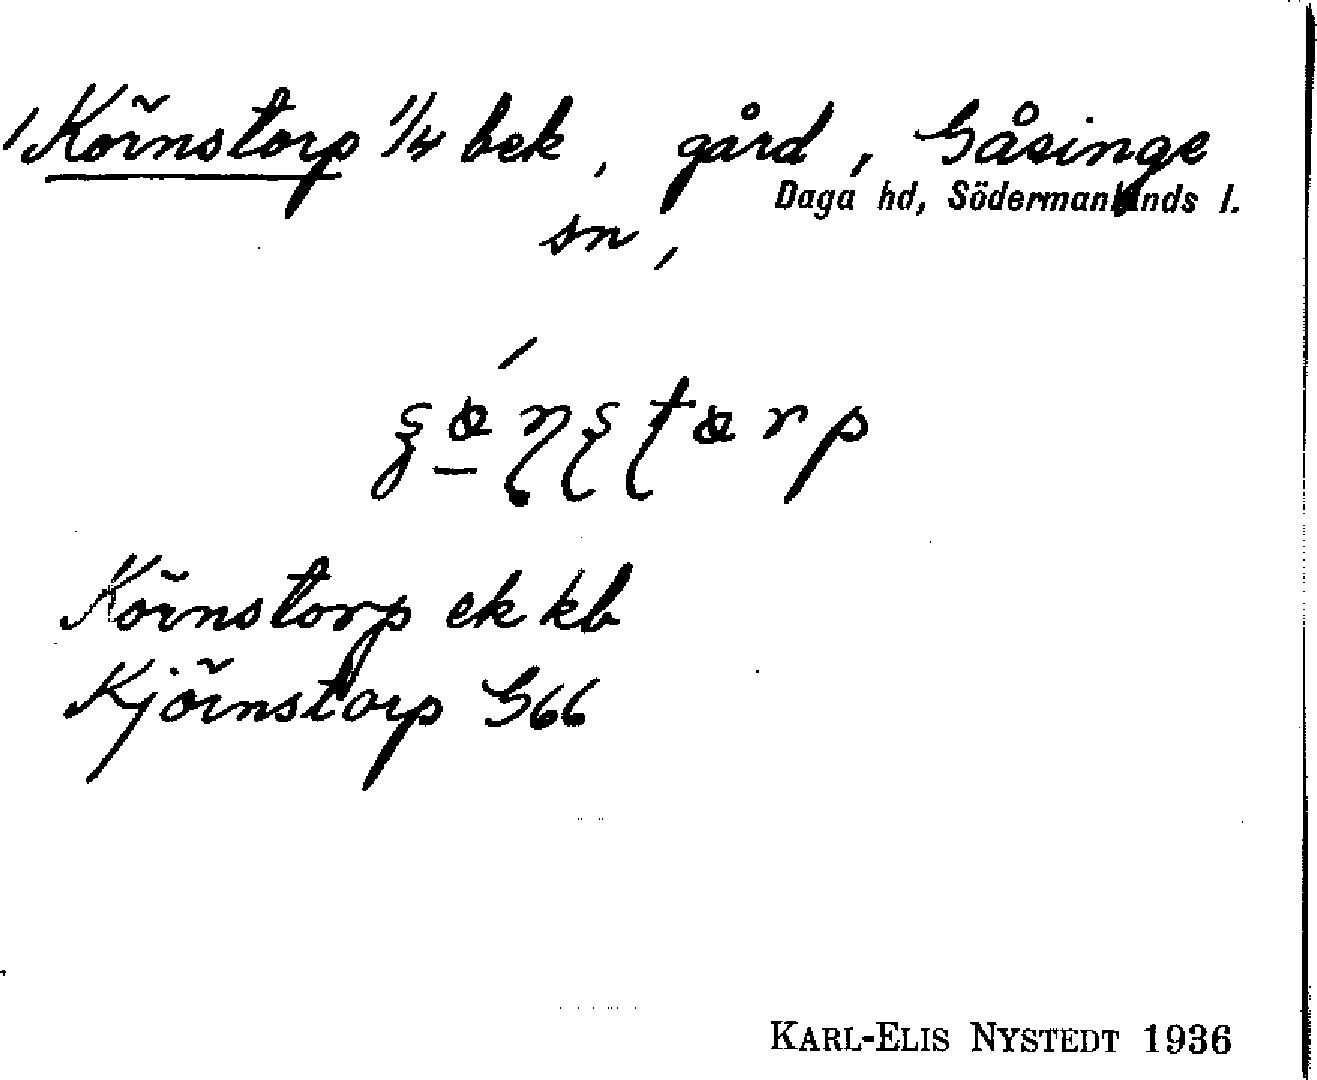 Körnstorp 1/4 bek, gård, Gåsinge
Daga hd, Södermanlands l.
sn,
Körnstorp ek kb
Kjörnstorp G66
KARL-ELIS NYSTEDT 1936